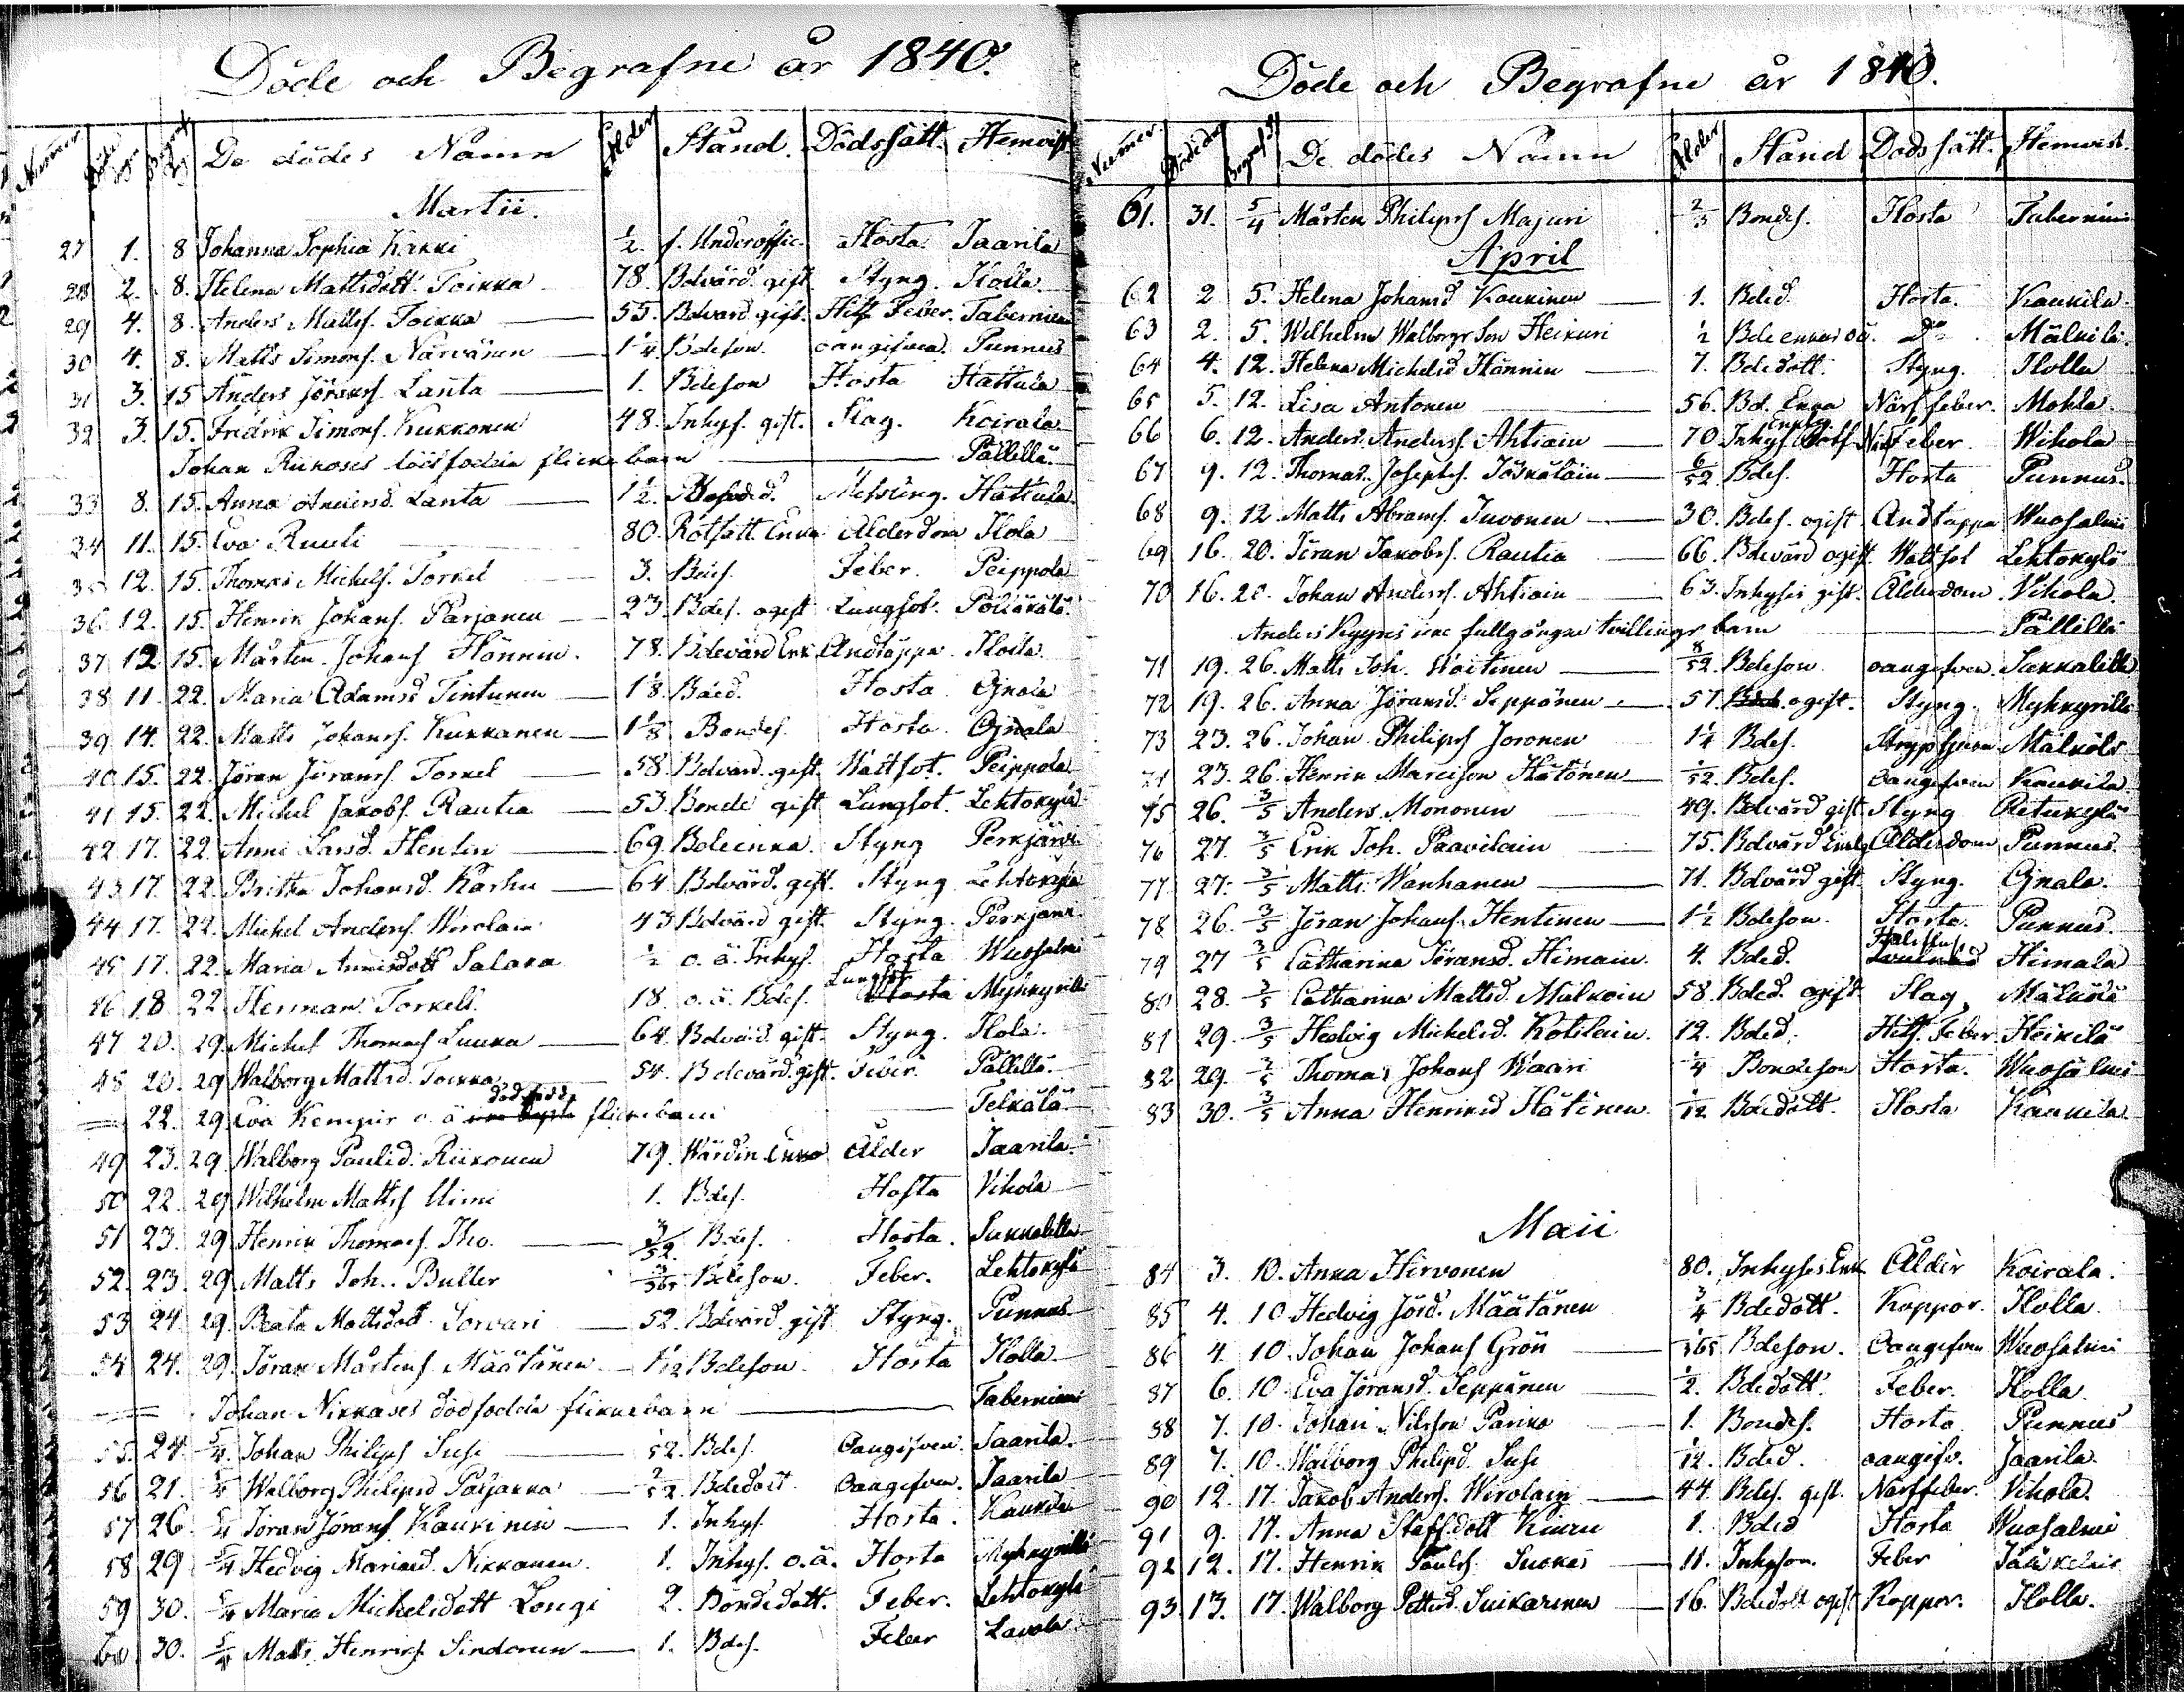 Döde och Begrafne år 1840.
Numer Döde dagar Begrafn. De dödes Namn Ålder Stånd. Dödssätt. Hemvist
Martii.
27 1. 8 Johanna Sophia Kakki ½. f. Underoffic. Hosta Jaarila
28 2. 8. Helena Mattsdott. Toikka 78. Bdvärd. gift. Styng. Ilolla
29 4. 8. Anders Mattss. Toikka 55. Bdvärd gift. Hitz Feber. Taberniem
30 4. 8. Matts Simons. Närvänen 1¼ Bdeson. oangifven. Punnus
31 3. 15 Anders Jöranss. Lanta 1. Bdeson Hosta Hattula
32 3. 15. Fredrik Simons. Kukkonen 48. Inhys. gift. Slag. Koirala
Johan Riikoses dödfödda flicke barn Pällillä
33 8. 15. Anna Andersd. Lanta 1½. Messling. Hattula
34 11. 15. Eva Ruuti 80. Rotfatt. Enka Ålderdom Ilola
35 12. 15. Thomas Michelss. Torkel 3. Bdes. Feber. Peippola
36. 12. 15. Henrik Johans. Parjanen 23. Bdes. ogift Lungsot. Pölläkälä
37 12 15. Mårten Johans Hännin. 78. Bdevärd Enk. Andtäppa Ilola
38 11 22. Maria Adamsd Tintunen 1⅛ Bded. Hosta Osnala
39 14. 22. Matts Johanss. Kukkanen 1⅛ Bondes. Hosta. Osnala
40 15. 22. Jöran Jöranss. Torkel 58. Bdvärd. gift. Wattsot. Peippola
41 15. 22. Michel Jakobs. Rautia 53. Bonde gift Lungsot. Lehtokylä
42 17. 22. Anna Larsd. Hentin 69. Bdeenka. Styng Perkjärvi
43 17. 22. Britha Johansd. Karhu 64. Bdvärd. gift. Styng. Lehtokylä
44 17. 22. Michel Anders. Wirolain 43 Bdvärd gift. Styng. Perkjärvi
45 17. 22. Maria Annisdott Salaka ½ o. ä. Inhys. Hosta Wuosalmi
46 18. 22 Herman Torkels. 18. o. ä. Bdes. Lungsot Hosta Myhkyrilä
47 20. 29 Michel Thomass Luuka 64. Bdvärd. gift. Styng. Ilola
48 20. 29 Walborg Mattsd. Toikka 54. Bdevärd. gift. Feber. Pällillä
22. 29 Eva Kempir o. ä dödfödd flickebarn Telkälä
49 23. 29 Walborg Paulsd. Riikonen 79. Wärdin Enka Ålder Jaarila
50 22. 29 Wilhelm Mattss Uimi 1. Bdes. Hosta Vihola
51 23. 29 Henrik Thomass. Iho. 3/52 Bdes. Hosta. Sukkalilla
52. 23. 29 Matts Joh. Buller 3/365 Bdeson. Feber. Lehtokylä
53 24 29 Beata Mattsdott Sorvari 52. Bdvärd gift Styng. Punnus
54 24. 29. Jöran Mårtens. Määtänen 1/12 Bdeson. Hosta Ilolla
Johan Nikkases dödfödda flickebarn Taberniemi
55. 24. 5/4. Johan Philips Susi /52. Bdes. Oangifven. Jaarila.
56 21. 5/4 Walborg Philipsd Parjanna 2/52 Bdedott Oangifven. Jaarila
57 26. 5/4 Jöran Jörans. Kaukinen 1. Inhys. Hosta. Kaukila
58 29 5/4 Hedvig Mariasd. Nikkanen. 1. Inhys. o. ä. Hosta Myhkyrillä
59 30. 5/4 Maria Michelsdott Longi 2. Bondedott. Feber. Lehtokylä
60. 30. 5/4 Matts Henrikss. Sindonen 1. Bdes. Feber Lavola
Döde och Begrafne år 1840.
Numer. Döde dag Begrafn De dödes Namn Ålder Stånd Dödssätt. Hemvist.
61. 31. 5/4 Mårten Philipss Majuri 2/3 Bondes. Hosta Taberniemi
April
62 2 5. Helena Johansd Kaukinen 1. Bded. Hosta. Kaukila
63 2. 5. Wilhelm Walborgs Son Heikuri ½ Bde enkas oä. Do Mälkilä.
64 4. 12. Helena Michelsd Hännin 7. Bdedott. Styng. Ilolla
65 5. 12. Lisa Antonen 56. Bd. Enka Närf feber. Mohla
66 6. 12. Anders Anderss. Ahtiain 70 Inhys. Enkl. Feber Wihola
67 9. 12. Thomas Josephss. Jääskeläin 6/52 Bdes. Hosta Punnus.
68 9. 12. Matts Abrams. Juvonen 30. Bdes. ogift Andtäppa Wuosalmi
69 16. 20. Jöran Jakobss. Rautia 66. Bdevärd ogift Wattsot Lehtokylä
70 16. 20. Johan Anderss. Ahtiain 63. Inhyses gift. Ålderdom Vihola
Anders Kyyrös icke fullgångne tvillinge barn Pällillä
71 19. 26. Matts Joh. Woitinen 8/52. Bdeson oangifven. Sukkalilla
72 19. 26. Anna Jöransd. Seppönen 57. ogift. Styng. Myhkyrillä
73 23. 26. Johan Philipss Joronen 1¼ Bdes. Strypsjuka Mälkölä
74 23. 26. Henrik Marcison Hätönen /52. Bdes. Oangifven Kaukila
75 26. 3/5 Anders Mononen 49. Bdvärd gift Styng Ritukylä
76 27. 3/5 Erik Joh. Paavilain 75. Bdvärd Enkl Ålderdom Punnus.
77 27. 3/5 Matts Wanhanen 71. Bdvärd gift. Styng. Osnala.
78 26. 3/5 Jöran Johans. Hentinen 1½ Bdeson. Hosta. Punnus.
79 27 3/5 Catharina Jöransd. Himain. 4. Bded. Halssjuk Himala
80 28. 3/5 Catharina Mattsd. Mälkoin 58. Bded. ogift Slag. Mälkölä
81 29. 3/5 Hedvig Michelsd. Kotilain. 12. Bded. Hitz. Feber. Heikilä
82 29. 3/5 Thomas Johans Waari ¼ Bondeson Hosta. Wuosalmi
83 30. 3/5 Anna Henriksd Hätinen. 1/12 Bdedott. Hosta Kaukila
Maii
84 3. 10. Anna Hirvonen 80. Inhyses Enk Ålder Koirala.
85 4. 10 Hedvig Jörd. Määtänen ¾ Bdedott. Koppor. Ilolla
86 4. 10. Johan Johans Grön /365 Bdeson. Oangifven Wuosalmi
87 6. 10. Eva Jöransd. Seppänen ½. Bdedott. Feber. Ilolla.
88 7. 10. Johan Nilsson Parikka 1. Bondes. Hosta Punnus
89 7. 10. Walborg Philipsd. Susi 1/12. Bded. oangifv. Jaarila.
90 12. 17. Jakob Anders. Wirolain 44. Bdes. gift. Närffeber. Vihola.
91 9. 17. Anna Staffsdott Kiuru 1. Bded Hosta Wuosalmi
92 12. 17. Henrik Paulss. Suokas 11. Inhyson. Feber
93 13. 17. Walborg Pettersd. Suikarinen 16. Bdedott ogift Koppor. Ilolla.